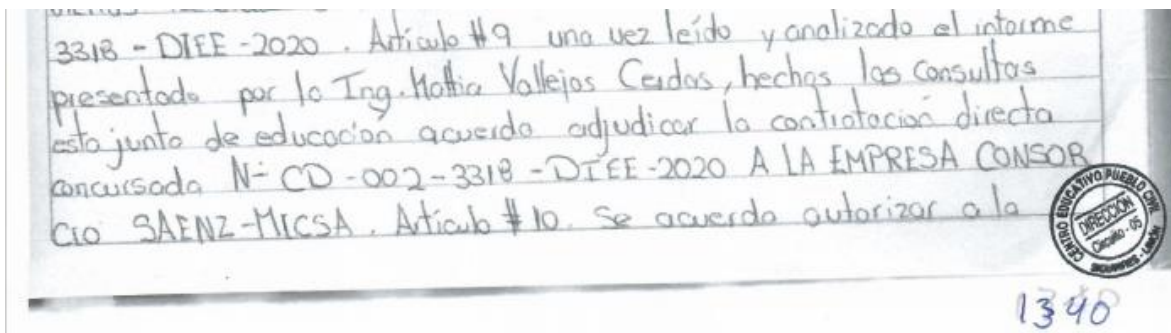 3318 - DIEE - 2020 . Articulo #9 una vez leído y analizado el informe
presentado por la Ing. Vallejos Cerdas, hechas las consultas
esta junta de educacion acuerda adjudicar la contratación directa
concursada N- CD - 002 - 3318 - DIEE - 2020 A LA EMPRESA CONSOR
CIO SAENZ-MICSA. Articulo #10. Se acuerda autorizar a la
CENTRO EDUCATIVO PUEBLO CIVIL
DIRECCIÓN
Circuito - 05
1340